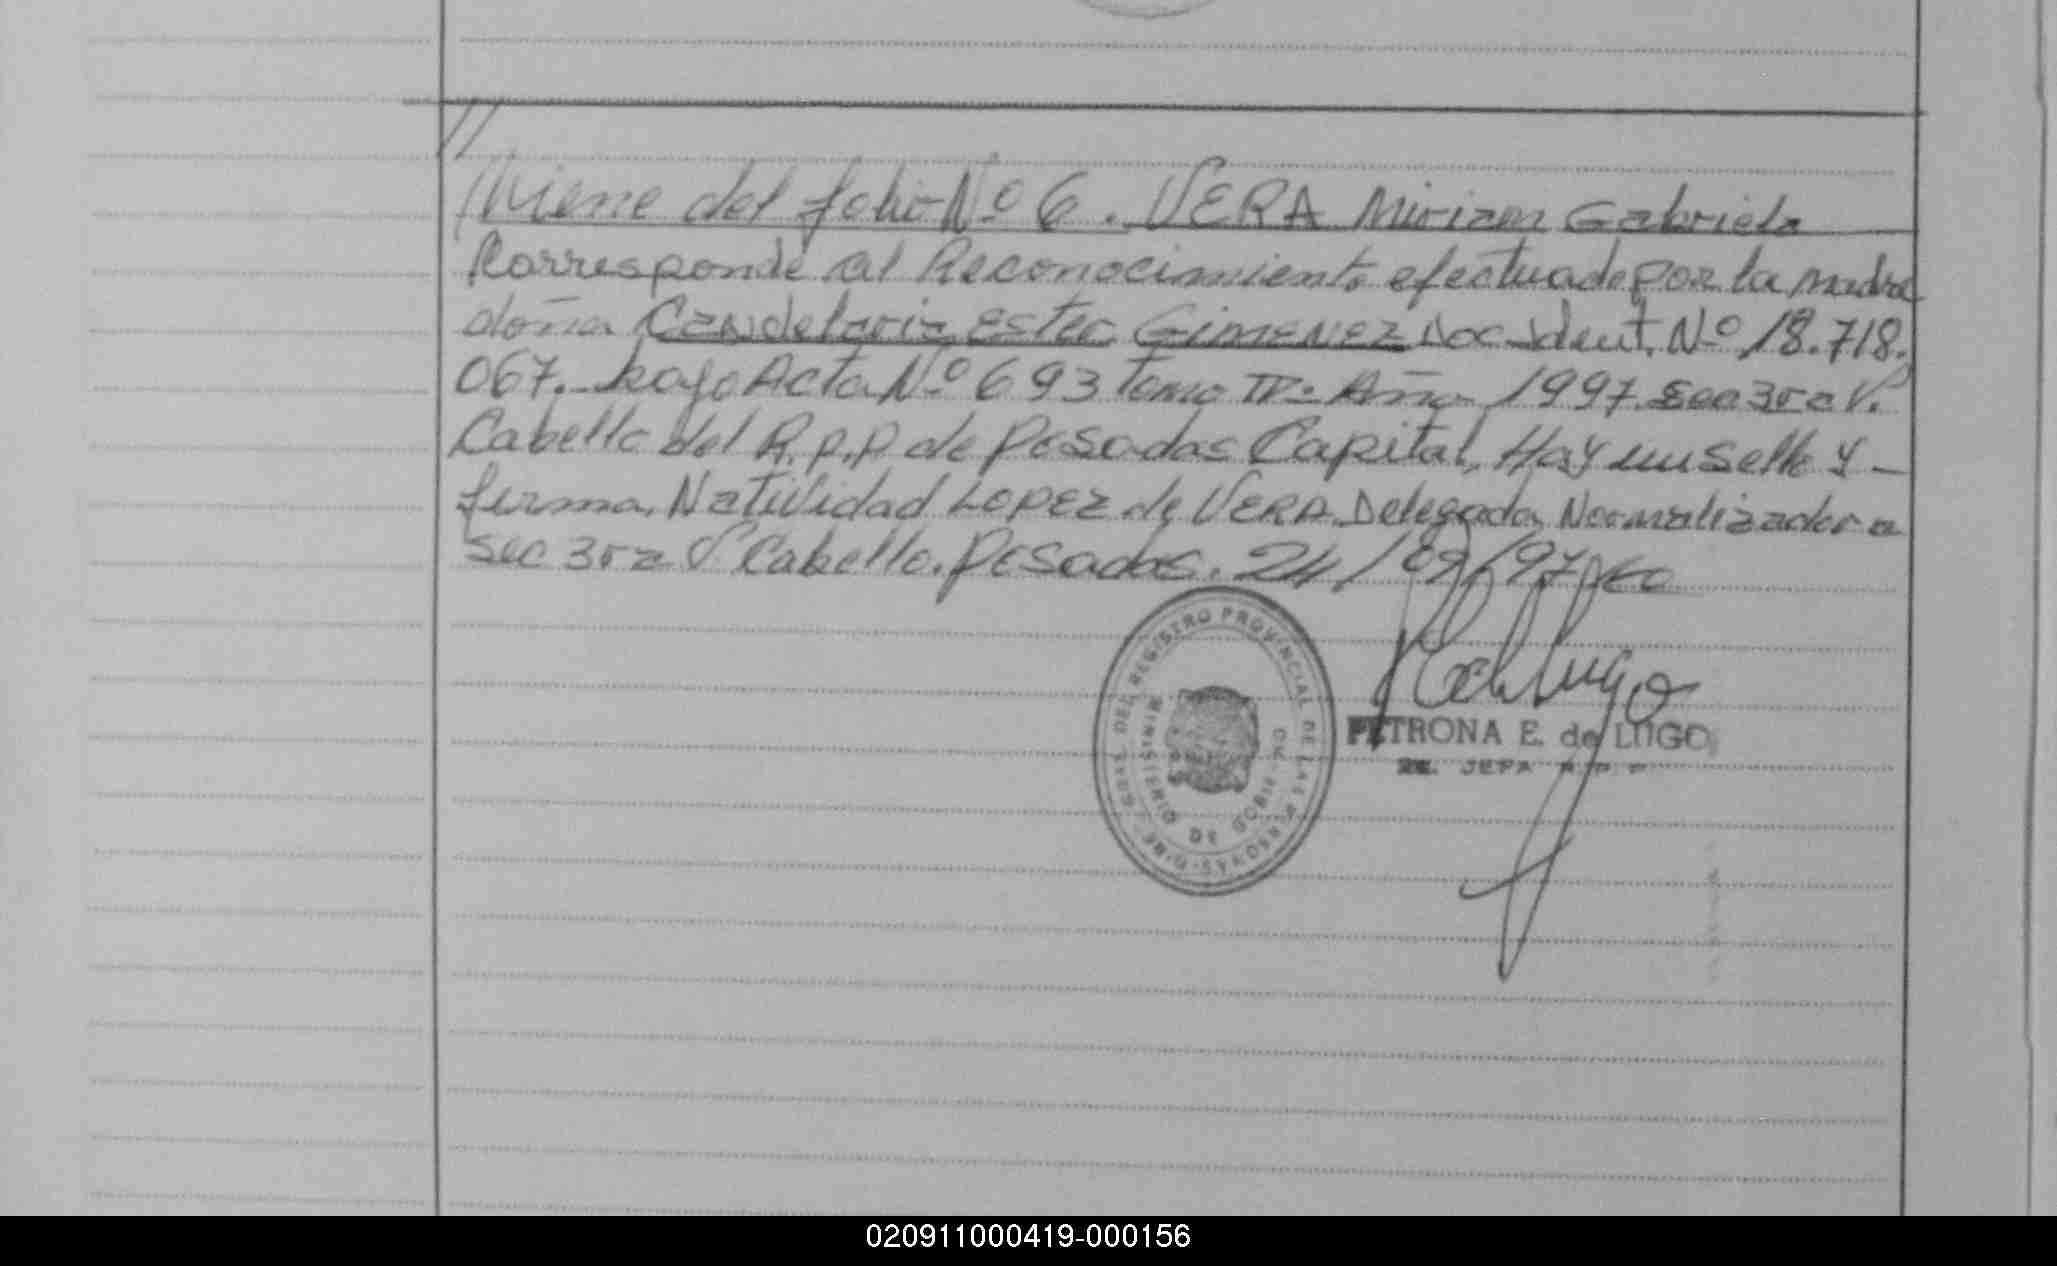 //
Viene del folio Nº 6. VERA Miriam Gabriela
Corresponde al Reconocimiento efectuado por la madre
doña Candelaria Ester GIMENEZ Doc Ident. Nº 18.718.
067. bajo Acta Nº 693 Tomo IIº Año 1997 Sec 3ra V.
Cabello del R.P.P de Posadas Capital, Hay un sello y
firma. Natividad LOPEZ de VERA Delegada Normalizadora
Sec 3ra V Cabello. Posadas. 24/09/97
REGISTRO PROVINCIAL DE LAS PERSONAS
MINISTERIO DE GOBIERNO
PETRONA E. de LUGO
JEFA R P P
020911000419-000156